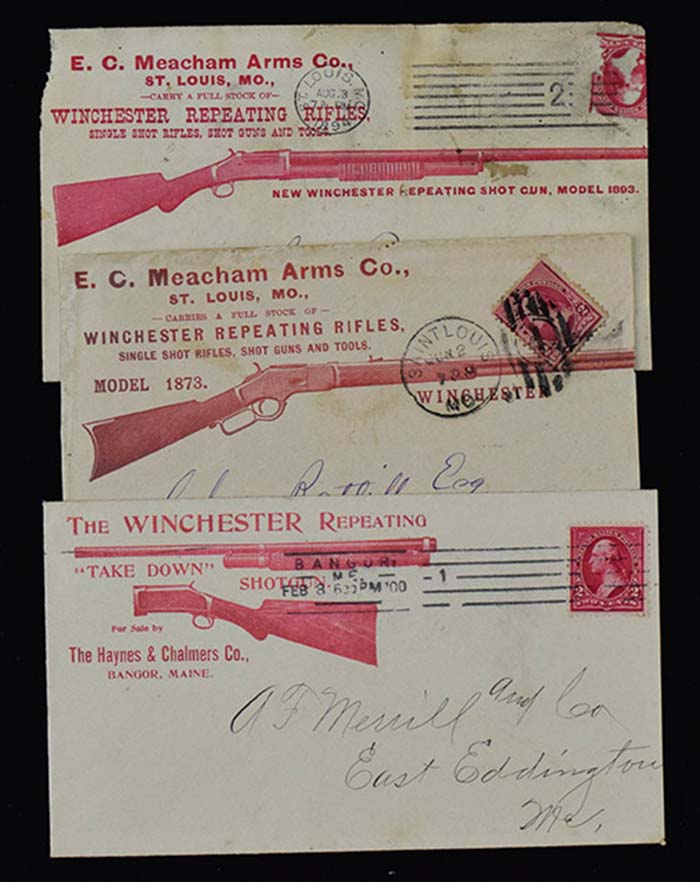 E. C. Meacham Arms Co.,
ST. LOUIS, MO.,
—CARRY A FULL STOCK OF—
WINCHESTER REPEATING RIFLES,
SINGLE SHOT RIFLES, SHOT GUNS AND TOOLS.
ST. LOUIS, MO.
AUG. 3
1894
2
NEW WINCHESTER REPEATING SHOT GUN, MODEL 1893.
E. C. Meacham Arms Co.,
ST. LOUIS, MO.,
— CARRIES A FULL STOCK OF —
WINCHESTER REPEATING RIFLES,
SINGLE SHOT RIFLES, SHOT GUNS AND TOOLS.
MODEL 1873.
SAINT LOUIS
JUN 2
MO
WINCHESTER
Esq
THE WINCHESTER REPEATING
"TAKE DOWN"
SHOTGUN.
BANGOR,
ME.
FEB 8 630PM '00
1
For Sale by
The Haynes & Chalmers Co.,
BANGOR, MAINE.
2 2
A F Merrill and Co
East Eddington
Me,